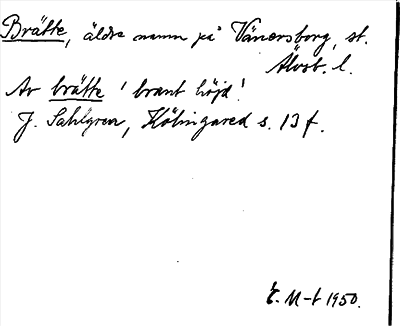 Brätte, äldre namn på Vänersborg, st.
Älvsb. l.
Av brätte 'brant höjd'.
J. Sahlgren, Kölingared s. 13 f.
E. M-t 1950.